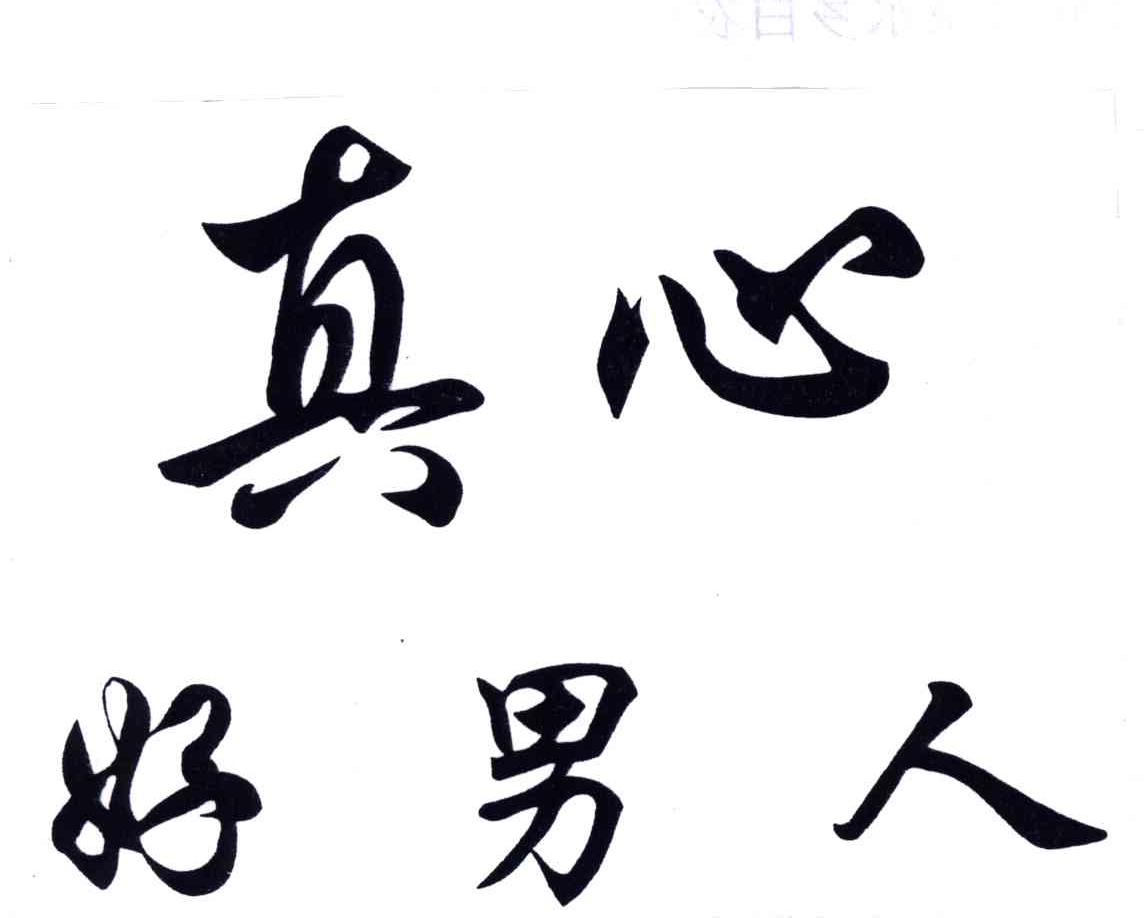 真心
好男人